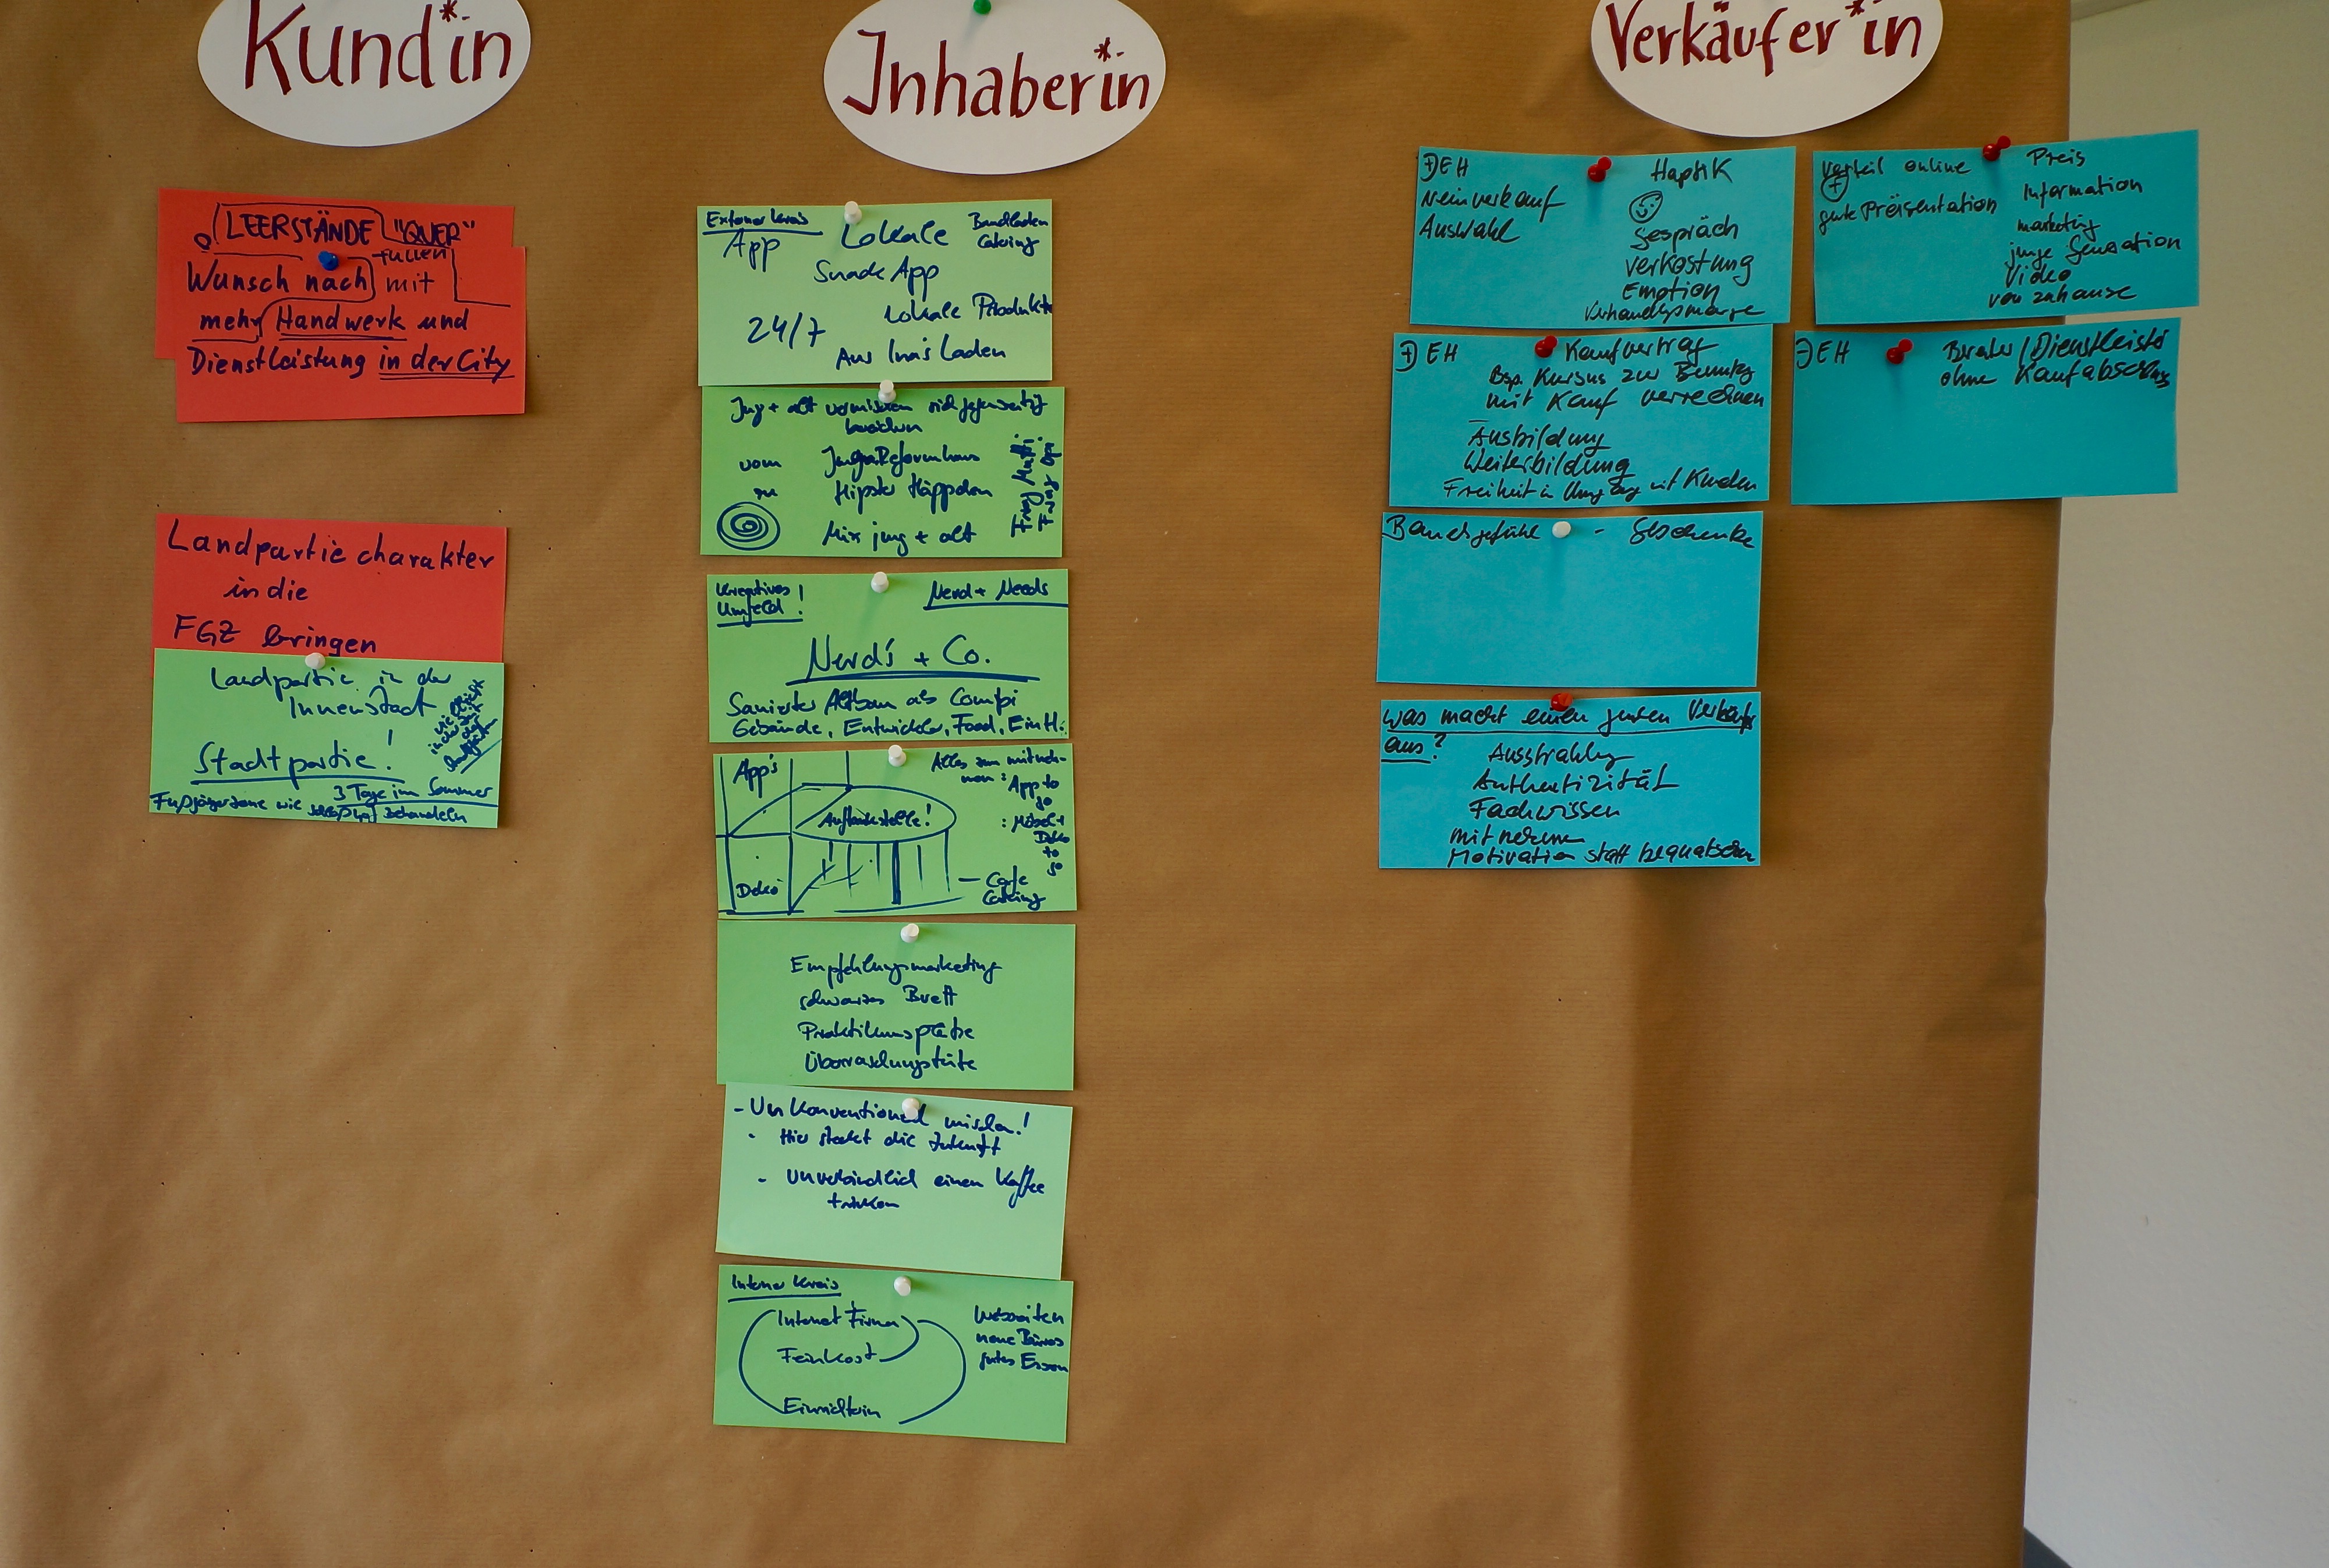 Kund*in
LEERSTÄNDE "QUER"
füllen
Wunsch nach mit
mehr Handwerk und
Dienstleistung in der City
Landpartiecharakter
in die
FGZ bringen
Landpartie in der
Innenstadt
Stadtpartie!
3 Tage im Sommer
Fußgängerzone wie behandeln
Inhaber*in
Externer Kreis
App
Lokale
Bandladen
Catering
App
Lokale Produkte
24/7
Aus Ina's Laden
Jung + alt vermischen sich gegenseitig
vom
Hipster Häppchen
Mix jung + alt
Kreatives!
Umfeld!
Nerd + Needs
Nerd's + Co.
Sanierter Altbau als Combi
Gebäude, Entwickler, Food, Ein H.
App's
Alles zum mitneh-
men: App to
go
: Möbel +
Deko
to
go
Auftankstelle!
Deko
Cafe
Catering
Empfehlungsmarketing
schwarzes Brett
Praktikumsplätze
Überraschungstüte
- Unkonventionell mischen!
- Hier steckt die Zukunft
- Unverbindlich einen Kaffee
trinken
Interner Kreis
Internet Firma
Feinkost
Webseiten
neue Büros
gutes Essen
Verkäufer*in
+ EH
Auswahl
Haptik
Gespräch
Verkostung
Emotion
Vorteil online
+
gute Präsentation
Preis
Information
marketing
junge Generation
Video
von zuhause
+ EH
Kaufvertrag
Bsp. Kursus zur
mit Kauf verrechnen
Ausbildung
Weiterbildung
Freiheit in Umgang mit Kunden
- EH
Berater/Dienstleister
ohne Kaufabschluss
Bauchgefühl - Geschenke
Was macht einen guten Verkäufer
aus?
Ausstrahlung
Authentizität
Fachwissen
mitnehmen
Motivation statt bequatschen